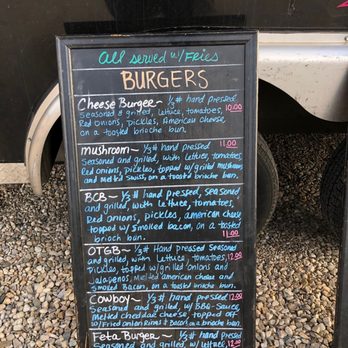 All served w/ Fries
BURGERS
Cheese Burger~ 1/3# hand pressed
Seasoned & grilled, lettuce, tomatoes, 10.00
Red onions, pickles, American cheese,
on a toasted brioche bun.
mushroom~ 1/3# hand pressed 11.00
Seasoned and grilled, with lettuce, tomatoes
Red onions, pickles, topped w/ grilled mushrooms
and melted swiss, on a toasted brioche bun.
BCB~ 1/3# hand pressed, seasoned
and grilled, with lettuce, tomatoes,
Red onions, pickles, american cheese
topped w/ smoked bacon, on a toasted
brioch bun. 11.00
OTGB~ 1/3# Hand Pressed Seasoned
and grilled, with lettuce, tomatoes, 12.00
Pickles, topped w/ grilled onions and
Jalapenos, melted american cheese and
Smoked Bacon, on a brioche bun.
Cowboy~ 1/3# hand pressed 12.00
Seasoned and grilled, w/ BBQ-Sauce,
melted cheddar cheese, topped off
w/ Fried onion Rings & Bacon, on a brioche bun.
Feta Burger~ 1/3# hand pressed
Seasoned and grilled, w/ lettuce, 12.00